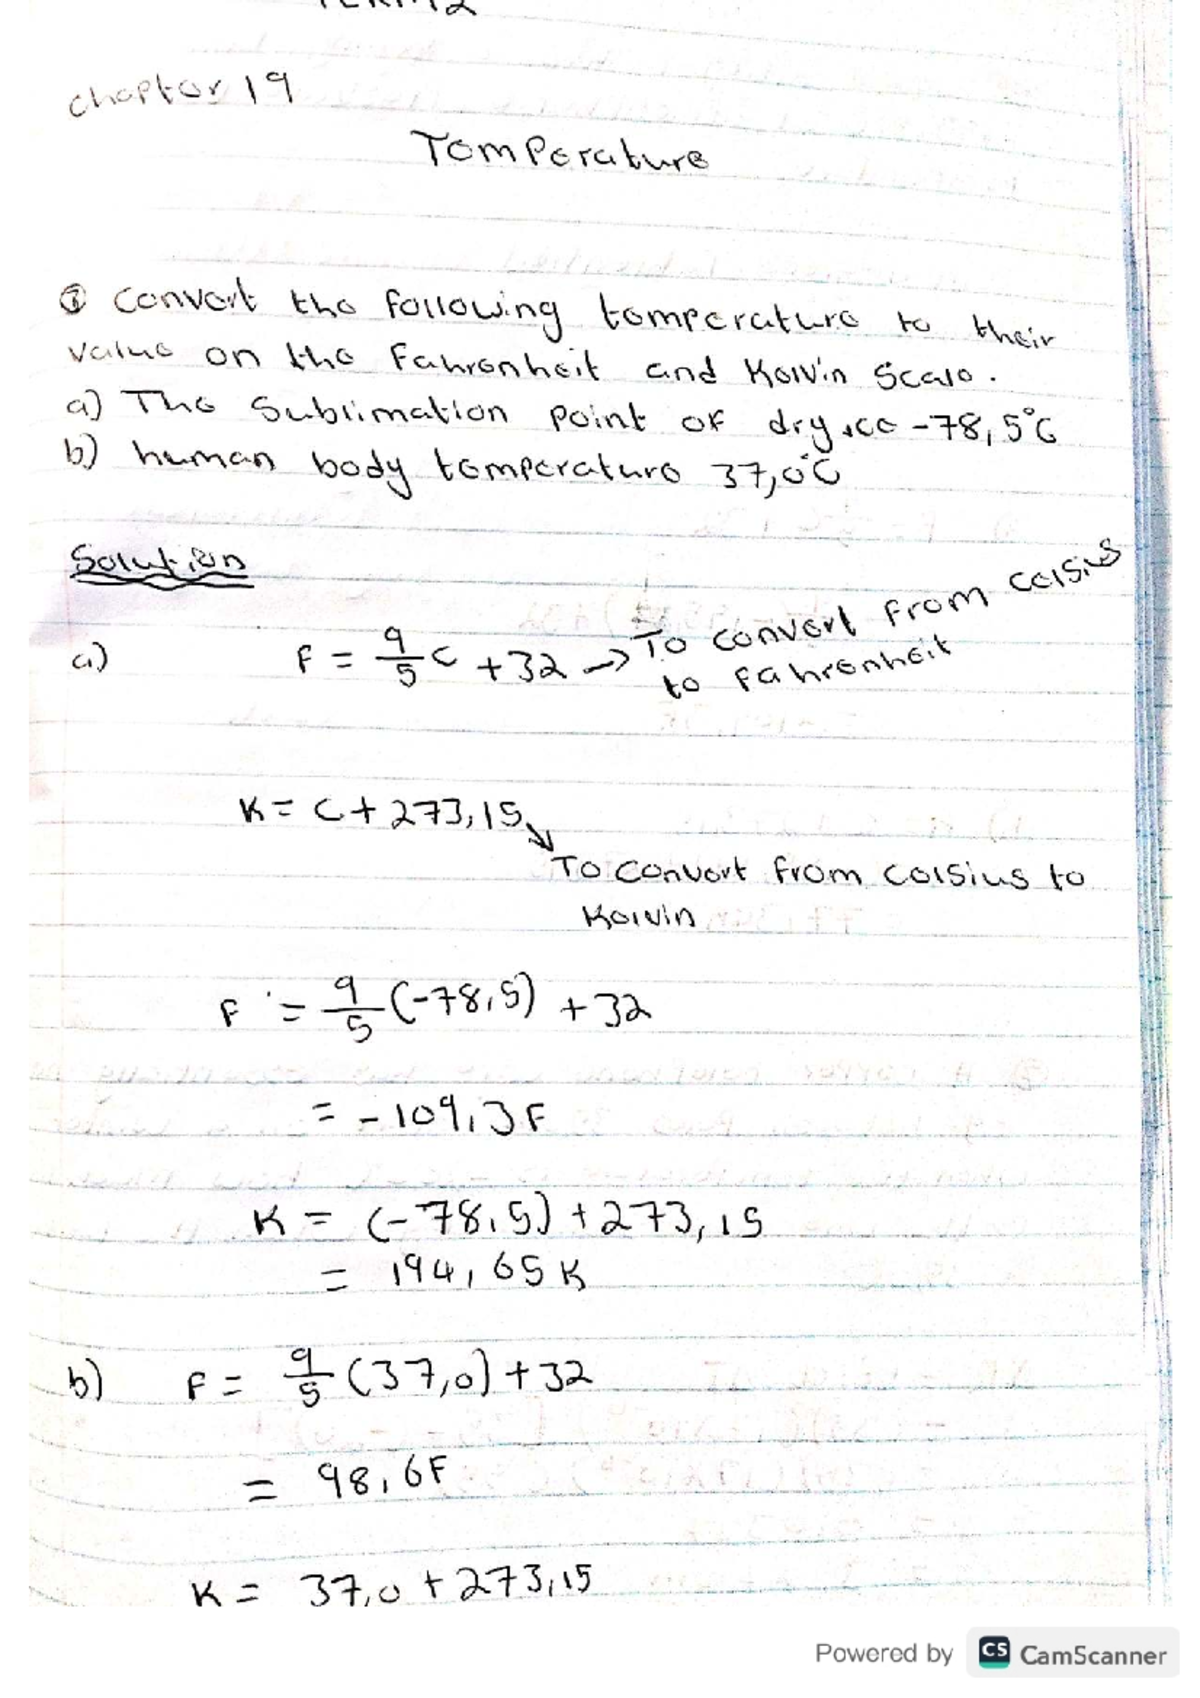 TERM 2
Chapter 19
Temperature
① Convert the following temperature to their
value on the Fahrenheit and Kelvin Scale.
a) The Sublimation Point of dry ice -78,5°C
b) human body temperature 37,0°C
Solution
a) F = 9/5 C + 32 → To convert from Celsius
to Fahrenheit
K = C + 273,15
To Convert from Celsius to
Kelvin
F = 9/5 (-78,5) + 32
= -109,3F
K = (-78,5) + 273,15
= 194,65K
b) F = 9/5 (37,0) + 32
= 98,6F
K = 37,0 + 273,15
Powered by CS CamScanner